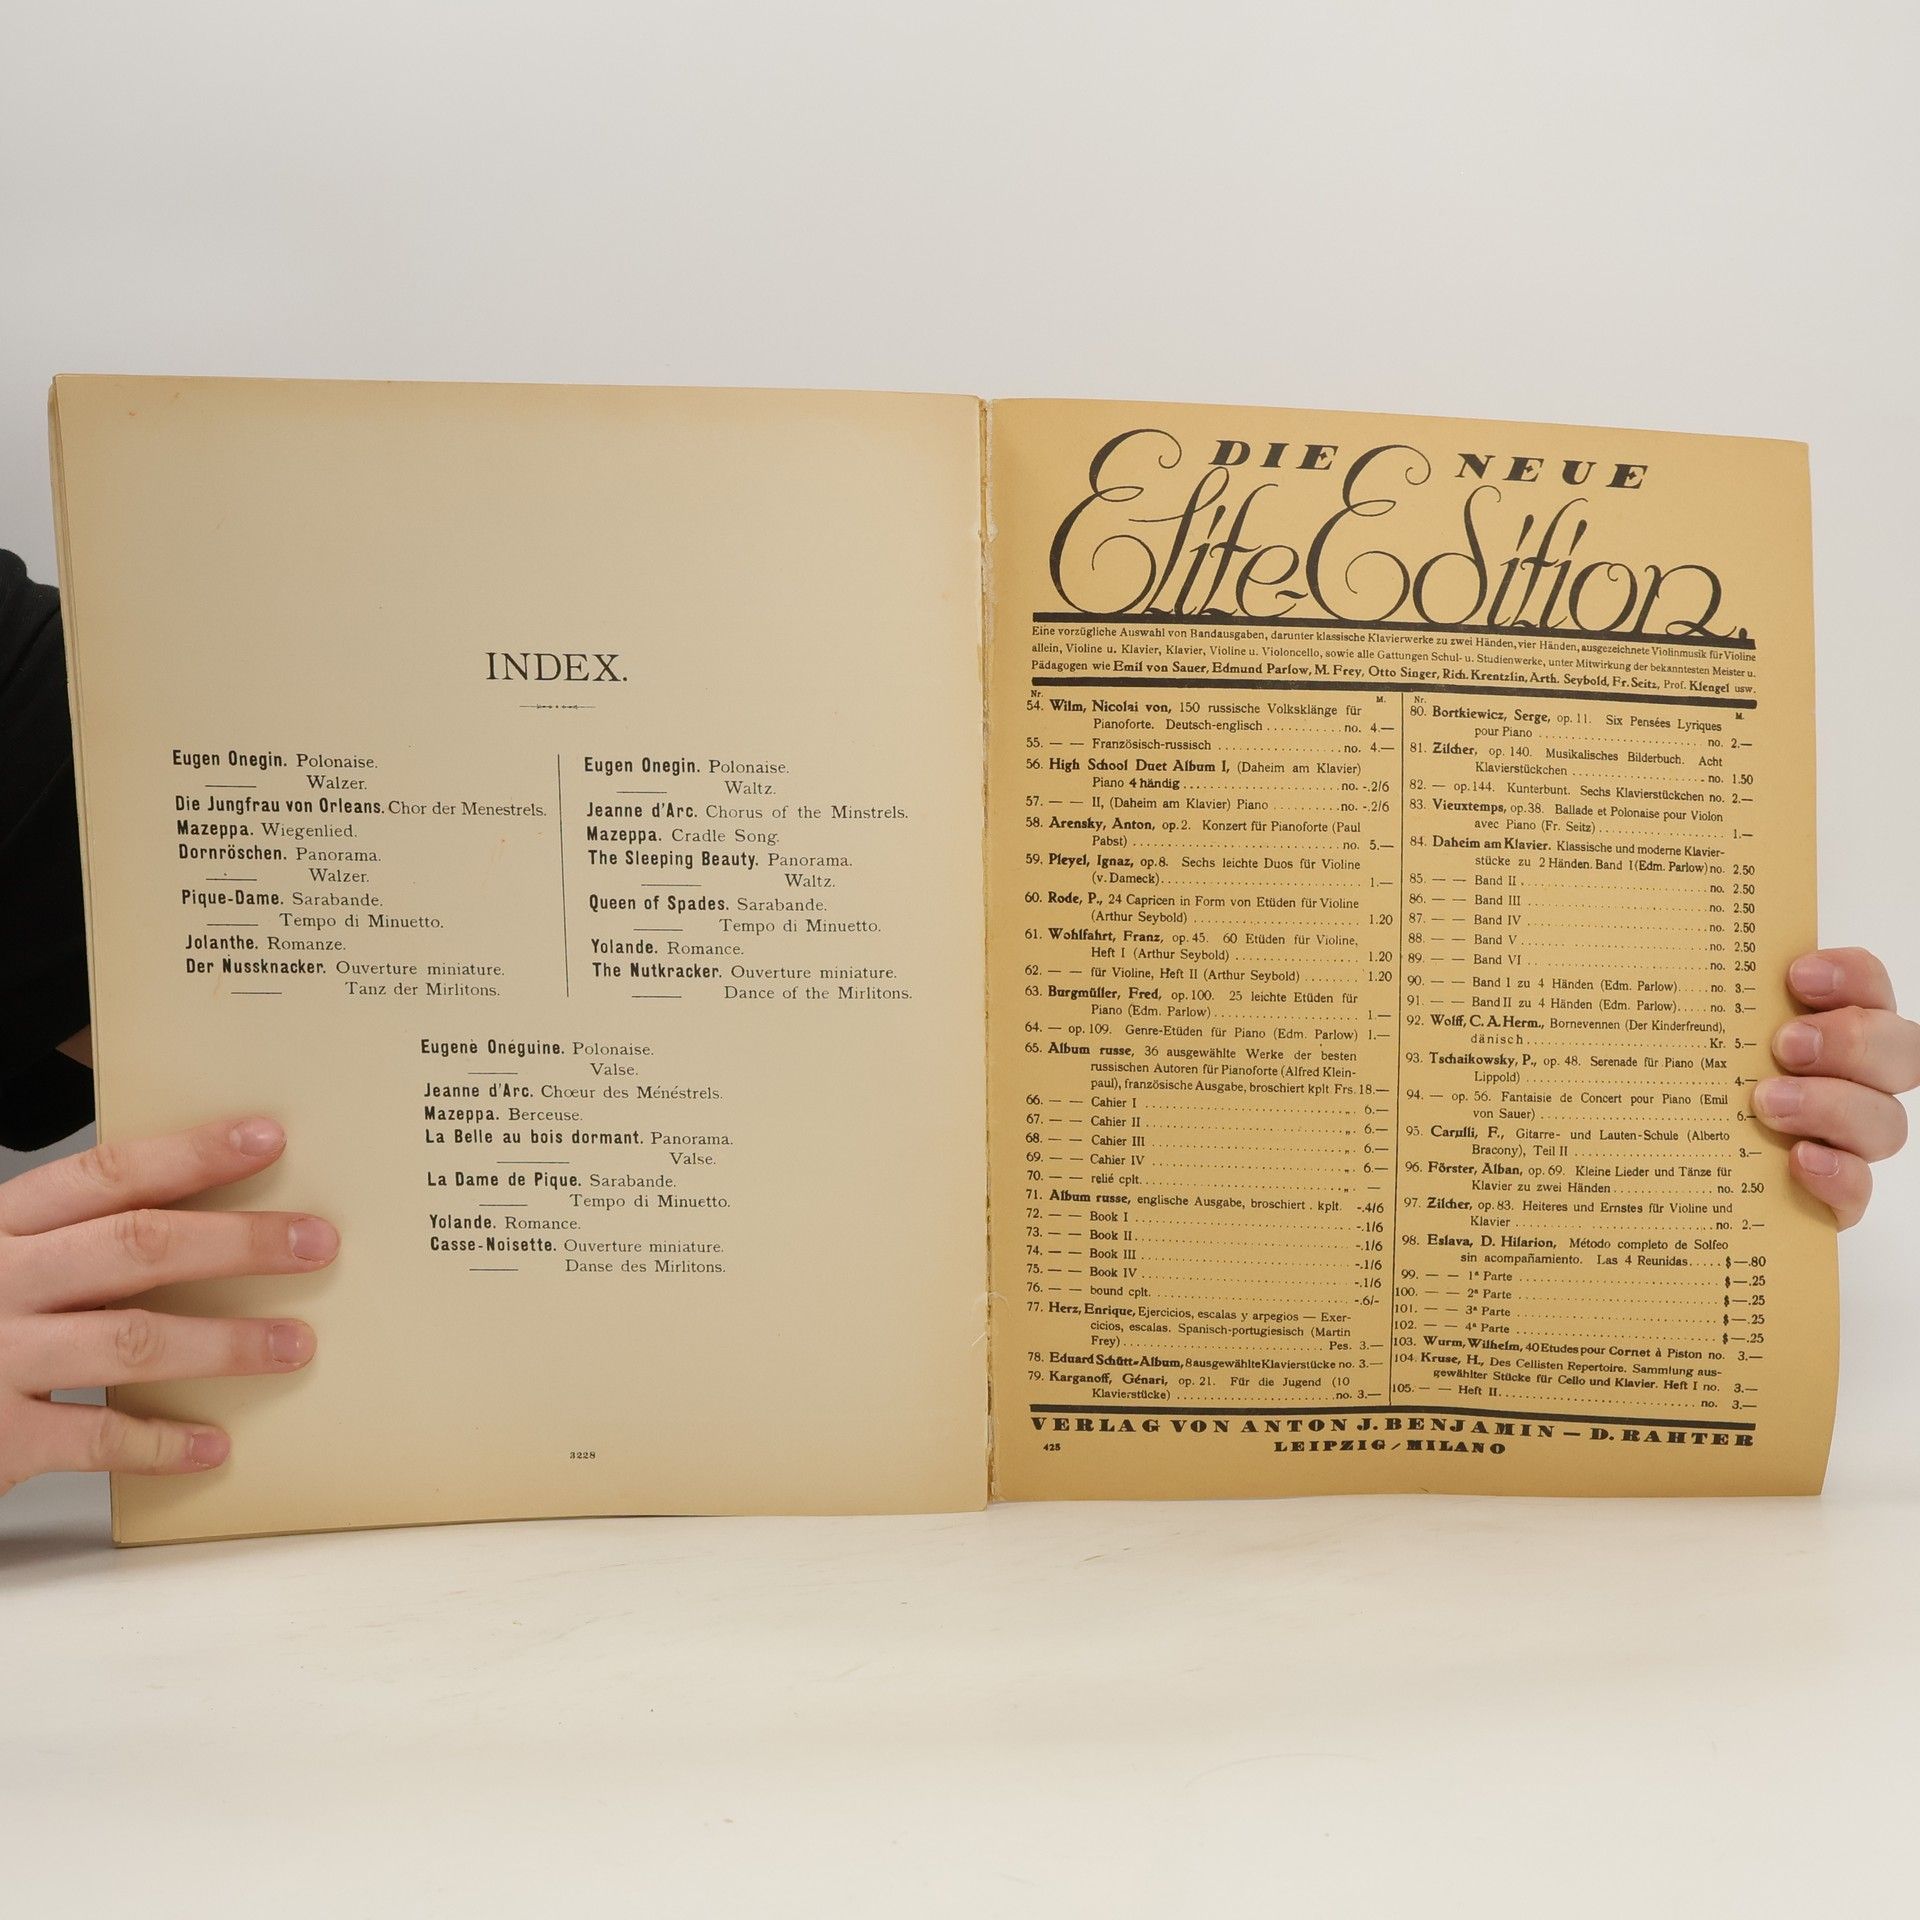 INDEX.
Eugen Onegin. Polonaise.
Walzer.
Die Jungfrau von Orleans. Chor der Menestrels.
Mazeppa. Wiegenlied.
Dornröschen. Panorama.
Walzer.
Pique-Dame. Sarabande.
Tempo di Minuetto.
Jolanthe. Romanze.
Der Nussknacker. Ouverture miniature.
Tanz der Mirlitons.
Eugen Onegin. Polonaise.
Waltz.
Jeanne d'Arc. Chorus of the Minstrels.
Mazeppa. Cradle Song.
The Sleeping Beauty. Panorama.
Waltz.
Queen of Spades. Sarabande.
Tempo di Minuetto.
Yolande. Romance.
The Nutkracker. Ouverture miniature.
Dance of the Mirlitons.
Eugene Onéguine. Polonaise.
Valse.
Jeanne d'Arc. Chœur des Ménéstrels.
Mazeppa. Berceuse.
La Belle au bois dormant. Panorama.
Valse.
La Dame de Pique. Sarabande.
Tempo di Minuetto.
Yolande. Romance.
Casse-Noisette. Ouverture miniature.
Danse des Mirlitons.
3228
DIE NEUE
Elite-Edition.
Eine vorzügliche Auswahl von Bandausgaben, darunter klassische Klavierwerke zu zwei Händen, vier Händen, ausgezeichnete Violinmusik für Violine
allein, Violine u. Klavier, Klavier, Violine u. Violoncello, sowie alle Gattungen Schul- u. Studienwerke, unter Mitwirkung der bekanntesten Meister u.
Pädagogen wie Emil von Sauer, Edmund Parlow, M. Frey, Otto Singer, Rich. Krentzlin, Arth. Seybold, Fr. Seitz, Prof. Klengel usw.
Nr. M.
54. Wilm, Nicolai von, 150 russische Volksklänge für
Pianoforte. Deutsch-englisch . . . . . . . . . . no. 4.—
55. — — Französisch-russisch . . . . . . . . . . no. 4.—
56. High School Duet Album I, (Daheim am Klavier)
Piano 4 händig . . . . . . . . . . no. -.2/6
57. — — II, (Daheim am Klavier) Piano . . . . . no. -.2/6
58. Arensky, Anton, op. 2. Konzert für Pianoforte (Paul
Pabst) . . . . . . . . . . no. 5.—
59. Pleyel, Ignaz, op. 8. Sechs leichte Duos für Violine
(v. Dameck) . . . . . . . . . . 1.—
60. Rode, P., 24 Capricen in Form von Etüden für Violine
(Arthur Seybold) . . . . . . . . . . 1.20
61. Wohlfahrt, Franz, op. 45. 60 Etüden für Violine,
Heft I (Arthur Seybold) . . . . . . . . . . 1.20
62. — — für Violine, Heft II (Arthur Seybold) . . . . . 1.20
63. Burgmüller, Fred, op. 100. 25 leichte Etüden für
Piano (Edm. Parlow) . . . . . . . . . . 1.—
64. — op. 109. Genre-Etüden für Piano (Edm. Parlow) 1.—
65. Album russe, 36 ausgewählte Werke der besten
russischen Autoren für Pianoforte (Alfred Klein-
paul), französische Ausgabe, broschiert kplt. Frs. 18.—
66. — — Cahier I . . . . . . . . . . „ 6.—
67. — — Cahier II . . . . . . . . . . „ 6.—
68. — — Cahier III . . . . . . . . . . „ 6.—
69. — — Cahier IV . . . . . . . . . . „ 6.—
70. — — relié cplt. . . . . . . . . . . „ —
71. Album russe, englische Ausgabe, broschiert . kplt. -.4/6
72. — — Book I . . . . . . . . . . -.1/6
73. — — Book II . . . . . . . . . . -.1/6
74. — — Book III . . . . . . . . . . -.1/6
75. — — Book IV . . . . . . . . . . -.1/6
76. — — bound cplt. . . . . . . . . . . -.6/-
77. Herz, Enrique, Ejercicios, escalas y arpegios — Exer-
cicios, escalas. Spanisch-portugiesisch (Martin
Frey) . . . . . . . . . . Pes. 3.—
78. Eduard Schütt-Album, 8 ausgewählte Klavierstücke no. 3.—
79. Karganoff, Génari, op. 21. Für die Jugend (10
Klavierstücke) . . . . . . . . . . no. 3.—
Nr. M.
80. Bortkiewicz, Serge, op. 11. Six Pensées Lyriques
pour Piano . . . . . . . . . . no. 2.—
81. Zilcher, op. 140. Musikalisches Bilderbuch. Acht
Klavierstückchen . . . . . . . . . . no. 1.50
82. — op. 144. Kunterbunt. Sechs Klavierstückchen no. 2.—
83. Vieuxtemps, op. 38. Ballade et Polonaise pour Violon
avec Piano (Fr. Seitz) . . . . . . . . . . 1.—
84. Daheim am Klavier. Klassische und moderne Klavier-
stücke zu 2 Händen. Band I (Edm. Parlow) no. 2.50
85. — — Band II . . . . . . . . . . no. 2.50
86. — — Band III . . . . . . . . . . no. 2.50
87. — — Band IV . . . . . . . . . . no. 2.50
88. — — Band V . . . . . . . . . . no. 2.50
89. — — Band VI . . . . . . . . . . no. 2.50
90. — — Band I zu 4 Händen (Edm. Parlow) . . . . . no. 3.—
91. — — Band II zu 4 Händen (Edm. Parlow) . . . . . no. 3.—
92. Wolff, C. A. Herm., Bornevennen (Der Kinderfreund),
dänisch . . . . . . . . . . Kr. 5.—
93. Tschaikowsky, P., op. 48. Serenade für Piano (Max
Lippold) . . . . . . . . . . 4.—
94. — op. 56. Fantaisie de Concert pour Piano (Emil
von Sauer) . . . . . . . . . . 6.—
95. Carulli, F., Gitarre- und Lauten-Schule (Alberto
Bracony), Teil II . . . . . . . . . . 3.—
96. Förster, Alban, op. 69. Kleine Lieder und Tänze für
Klavier zu zwei Händen . . . . . . . . . . no. 2.50
97. Zilcher, op. 83. Heiteres und Ernstes für Violine und
Klavier . . . . . . . . . . no. 2.—
98. Eslava, D. Hilarion, Método completo de Solfeo
sin acompañamiento. Las 4 Reunidas . . . . . $ —.80
99. — — 1ª Parte . . . . . . . . . . $ —.25
100. — — 2ª Parte . . . . . . . . . . $ —.25
101. — — 3ª Parte . . . . . . . . . . $ —.25
102. — — 4ª Parte . . . . . . . . . . $ —.25
103. Wurm, Wilhelm, 40 Etudes pour Cornet à Piston no. 3.—
104. Kruse, H., Des Cellisten Repertoire. Sammlung aus-
gewählter Stücke für Cello und Klavier. Heft I no. 3.—
105. — — Heft II . . . . . . . . . . no. 3.—
VERLAG VON ANTON J. BENJAMIN — D. RAHTER
425 LEIPZIG / MILANO